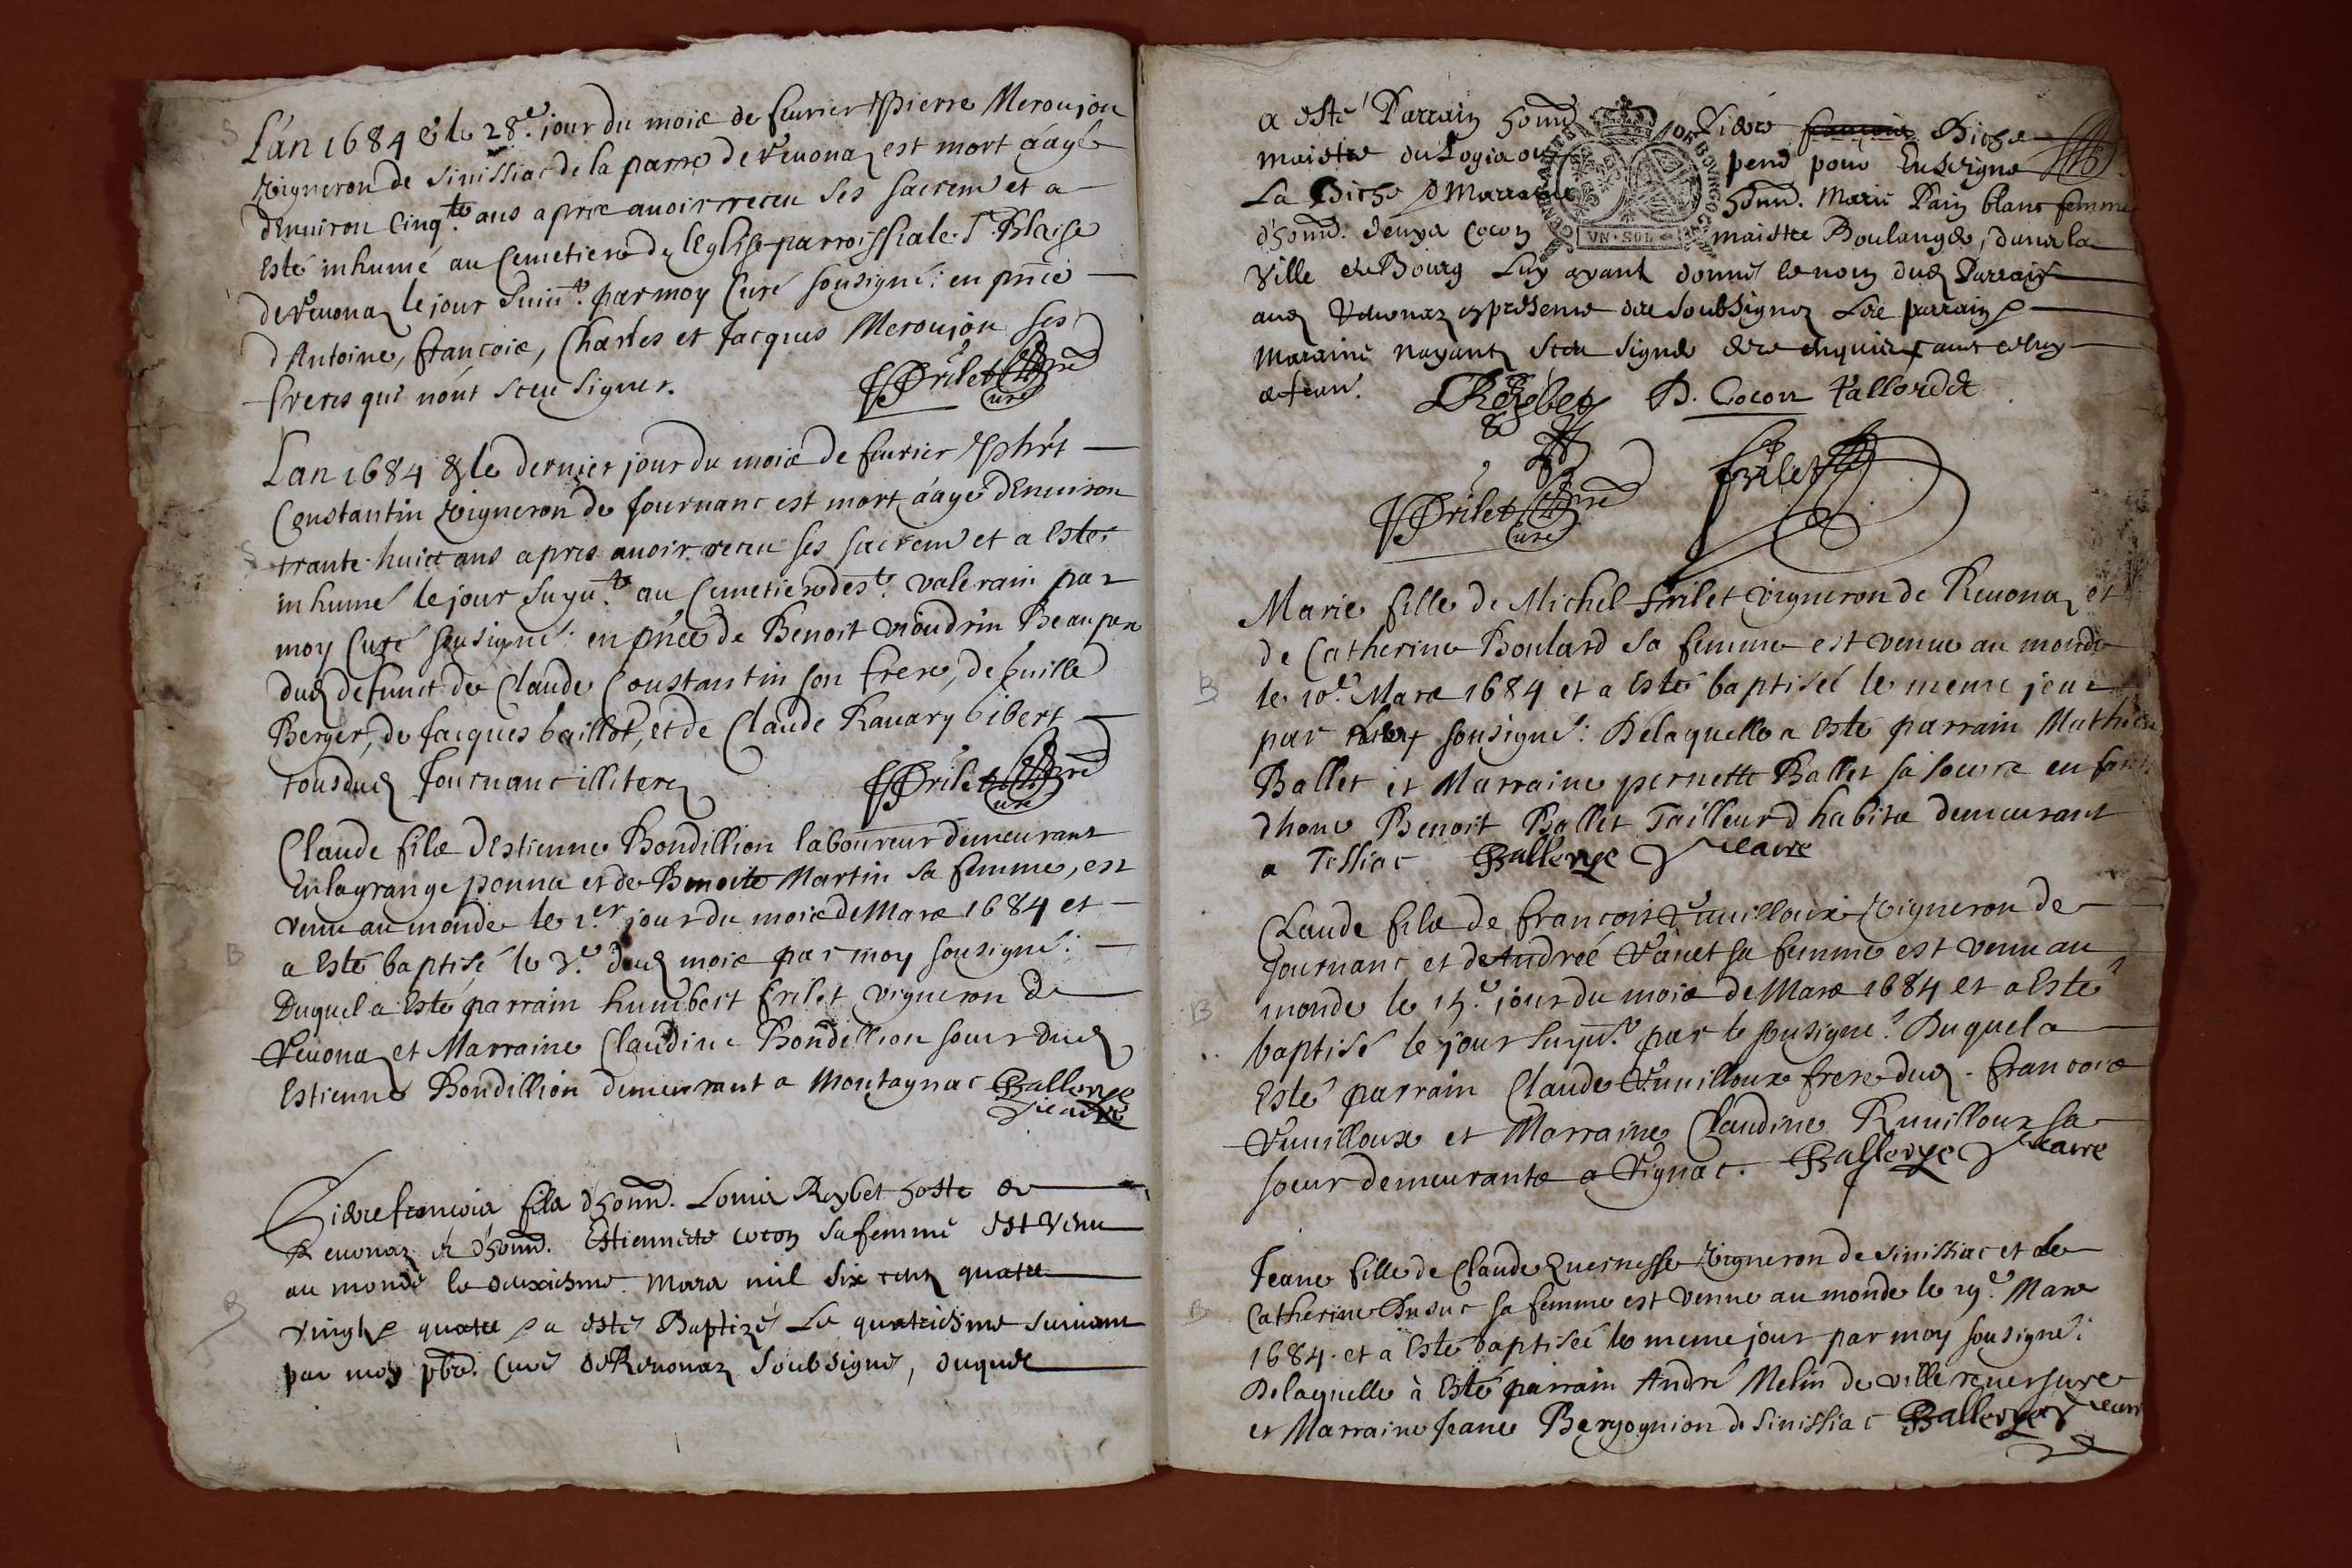 Lán 1684 & le 28.e jour du mois de feurier Pierre Meroujon
Vigneron de Sinissiac de la parre de Reuonaz est mort áagé
dEnuiron Cinq.te ans apres auoir receu ses sacrem et a
Esté inhumé au Cemetiere de lEglise parroissiale St Blaise
de Reuonaz le jour suiu.t par moy Curé sousigné: en pnce
d'Antoine, francois, Charles et Jacques Meroujon ses
freres qui nónt sceu signer. Frilet pre
Curé
Lan 1684 & le dernier jour du mois de feurier
Constantin Vigneron de Journanc est mort áagé dEnuiron
trante-huict ans apres auoir receu ses sacrem et a Esté
inhumé le jour suyu.t au Cemetiere de St. Valerain par
moy Curé sousigné: en pnce de Benoit Beaupere
dud defunct de Claude Constantin son frere, de
Berger, de Jacques baillot, et de Claude Rauary Gibert
tous dud Journanc illiterez Frilet pre
Curé
Claude fils dEstienne Bondillion laboureur demeurant
En la grange ponna et de Benoite Martin sa femme, est
venu au monde le 1.er jour du mois de Mars 1684 et
B a Esté baptisé le 3.e dud mois par moy sousigné:
Duquel a Esté parrain humbert frilet vigneron de
Reuonaz et Marraine Claudine Bondillion soeur dud
Estienne Bondillion demeurant a Montagnac Balleyge
Vicaire
Piere francois fils dhonn. Louis Reybet hoste de
Reuonaz & dhonn. Estiennette cocon sa femme est venu
au monde le deuxiesme mars mil six cents quatre
B vingt & quatre & a esté Baptizé Le quatriesme suiuant
par moy pbre. Curé de Reuonaz soubsigné, duquel
a esté Parrain honn Piere francois Biche
maistre du Logis ou pend pour Enseigne
La Biche & Marraine honn. Marie Pain blanc femme
GENERALITE DE BOURGOG
VN·SOL
d'honn. denys Cocon maistre Boulanger, dans la
Ville de Bourg Luy ayant donné le nom dud Parrain
aud Reuonaz en presence des soubsignez Les parrain &
maraine nayant sceu signer de ce enquis sauf celuy
Reybet D. Cocon Tallordet
Frilet pre frilet
Curé
Marie fille de Michel frilet vigneron de Reuonaz et
de Catherine Boulard sa femme est venue au monde
B le 10.e Mars 1684 et a Esté baptiseé le meme jour
par sousigné: Delaquelle a Esté parrain Mathieu
Ballet et Marraine pernette Ballet sa soeur enfans
dhone Benoit Ballet Tailleur dhabits demeurant
a Tessiac Balleyge Vicaire
Claude fils de francois Vuuilloux Vigneron de
Journanc et de Andreé Vanet sa femme est venu au
B monde le 15.e jour du mois de Mars 1684 et a Esté
baptisé le jour suyu.t par le sousigné: Duquel a
Esté parrain Claude Vuuilloux frere dud. francois
Vuuilloux et Marraine Claudine Ruuilloux sa
soeur demeurants a Vignac. Balleyge Vicaire
Jeane fille de Claude Quernesse Vigneron de Sinissiac et de
B Catherine Dusuc sa femme est venue au monde le 19.e Mars
1684. et a Esté baptiseé le meme jour par moy sousigné:
Delaquelle à Esté parrain André Melin de ville reuersure
et Marraine Jeane Bergognion de Sinissiac Balleyge Vicaire